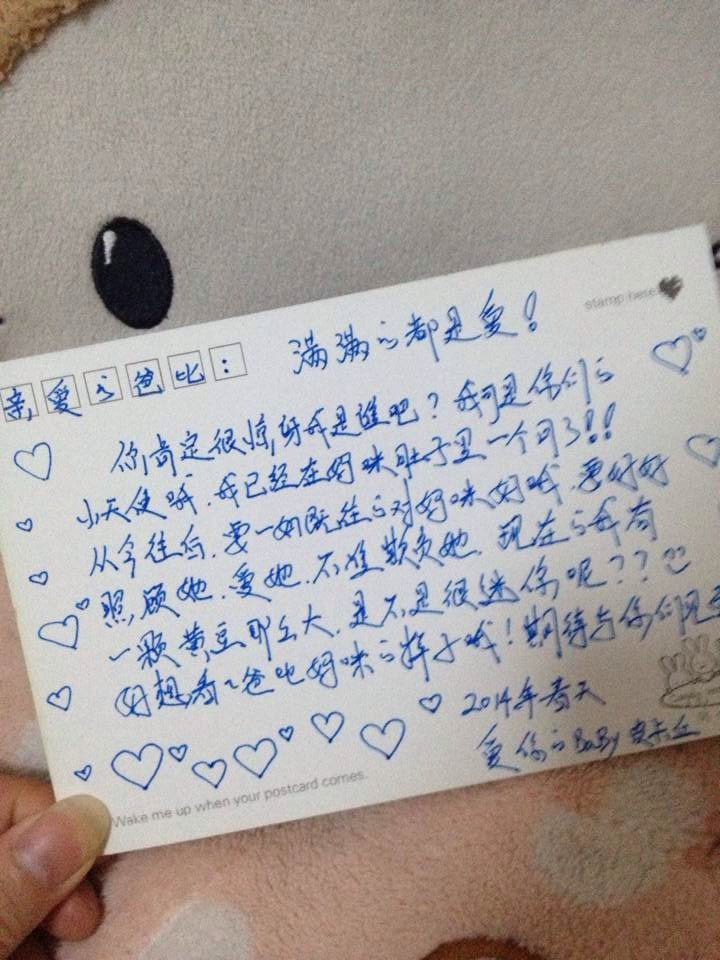 stamp here
满满的都是爱!
亲爱的爸比:
你肯定很惊讶我是谁吧?我可是你们的
小天使哦.我已经在妈咪肚子里一个月了!!
从今往后.要一如既往的对妈咪好哦.要好好
照顾她.爱她.不准欺负她.现在的我有
一颗黄豆那么大.是不是很迷你呢??
好想看看爸比妈咪的样子哦!期待与你们见
2014年春天
爱你的BaBy 皮卡丘
Wake me up when your postcard comes.